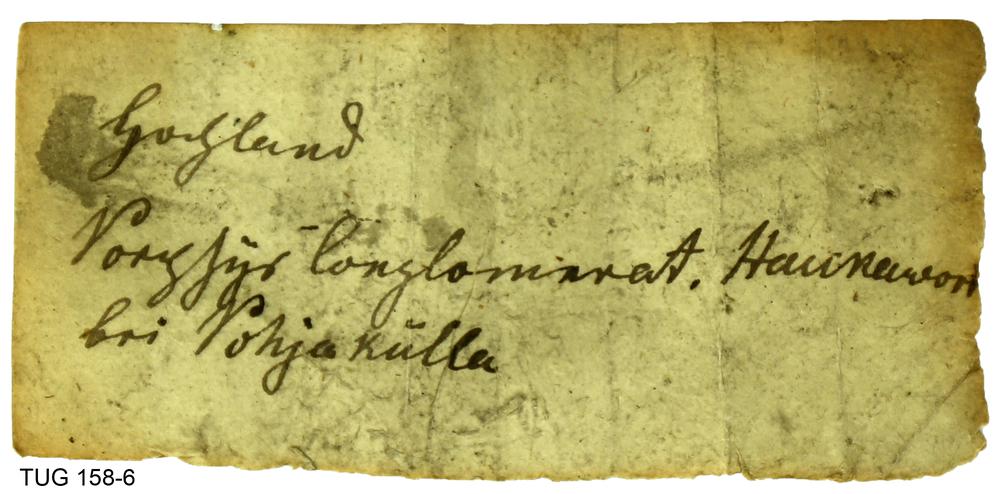 Hochland
Porphyr Conglomerat. Haukawori
bei Pohjakülla
TUG 158-6